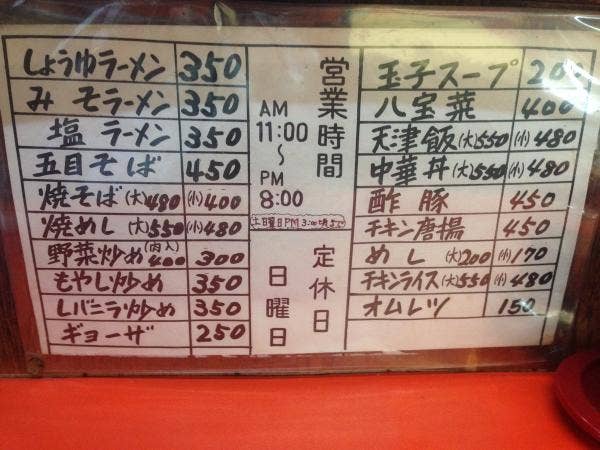 しょうゆラーメン 350
みそラーメン 350
塩ラーメン 350
五目そば 450
焼そば(大)480 (小)400
焼めし(大)550 (小)480
野菜炒め(肉入)400 300
もやし炒め 350
レバニラ炒め 350
ギョーザ 250
営業時間
AM
11:00
〜
PM
8:00
(土曜日PM3:00頃まで)
定休日
日曜日
玉子スープ 200
八宝菜 400
天津飯(大)550 (小)480
中華丼(大)550 (小)480
酢豚 450
チキン唐揚 450
めし(大)200 (小)170
チキンライス(大)550 (小)480
オムレツ 150